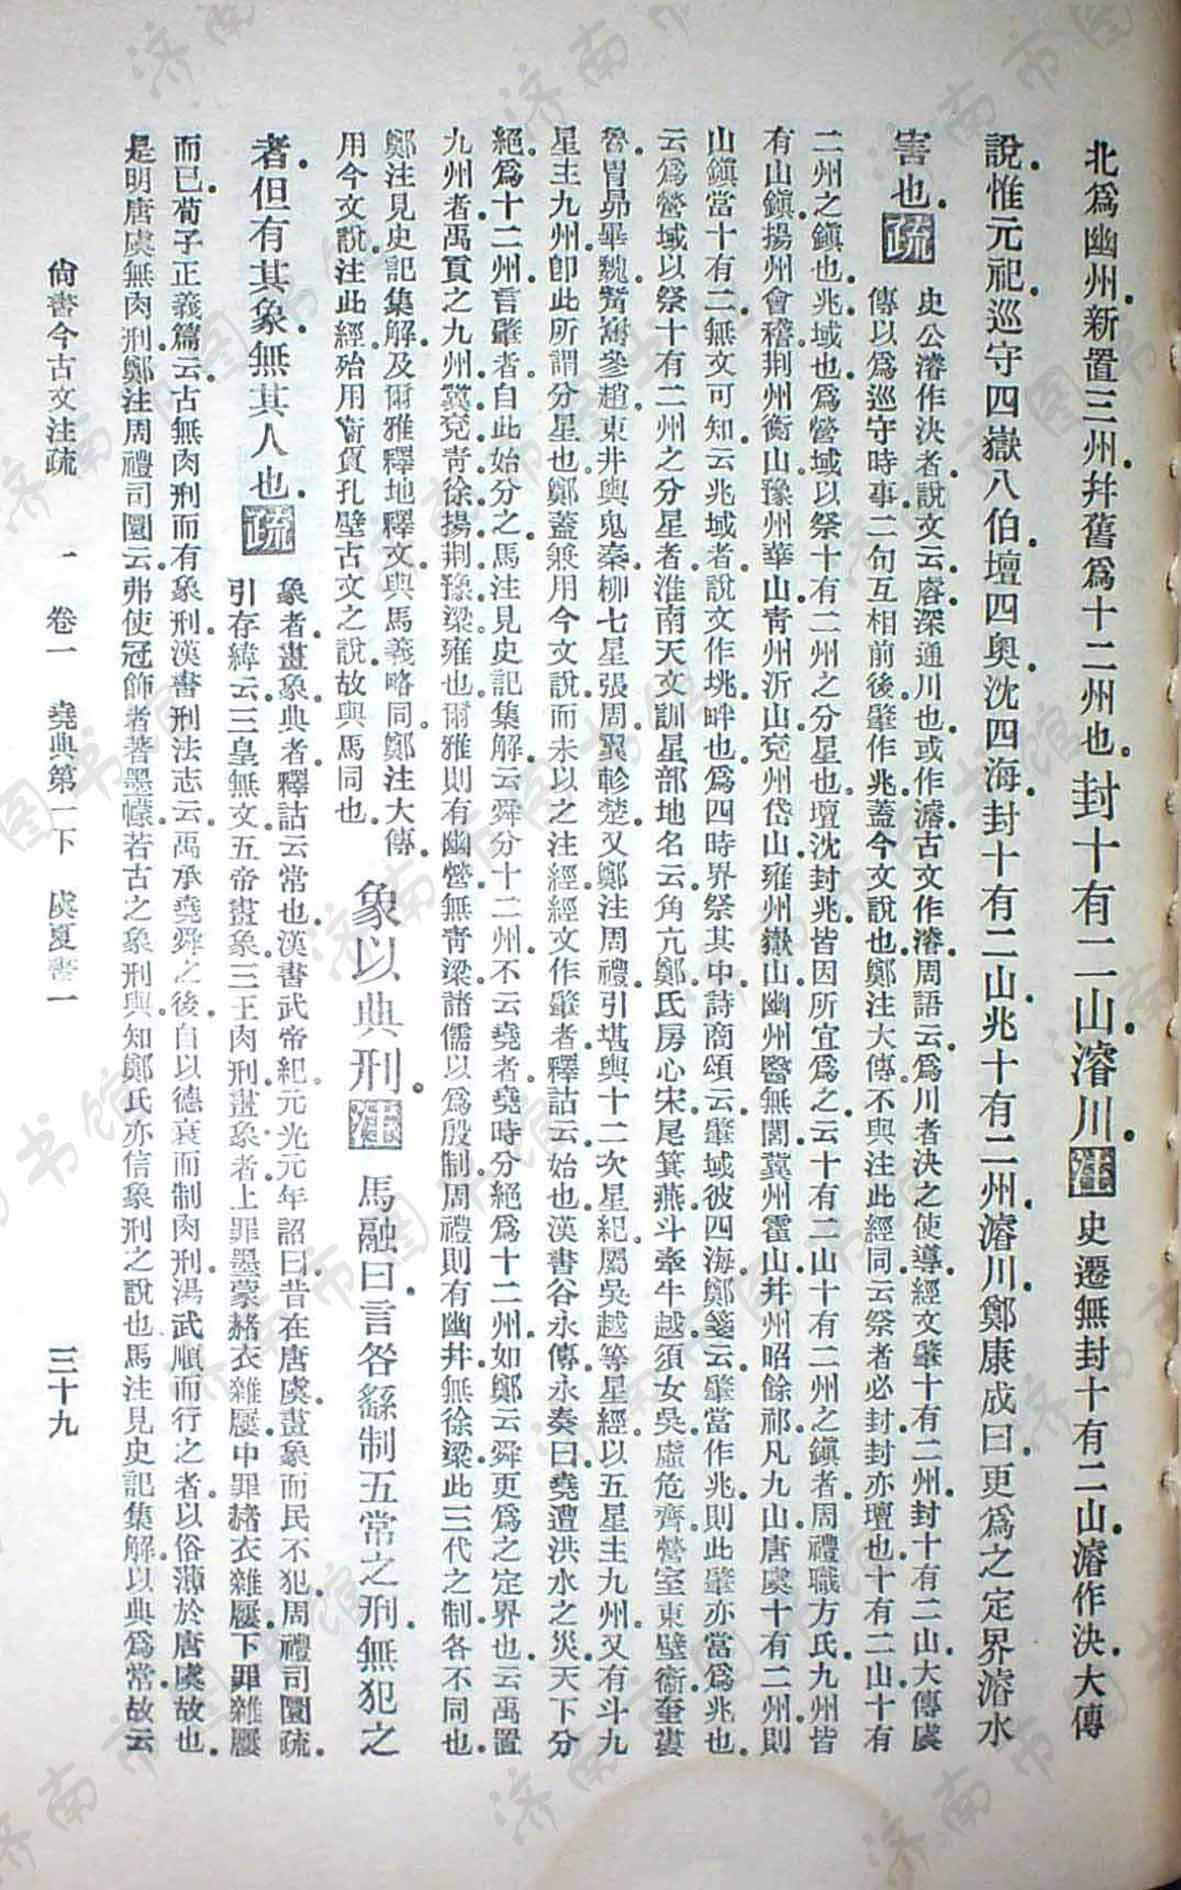 北爲幽州新置三州幷舊爲十二州也封十有二山濬川注史遷無封十有二山濬作決大傳
說惟元祀巡守四嶽八伯壇四奧沈四海封十有二山兆十有二州濬川鄭康成曰更爲之定界濬水
害也疏
史公濬作決者說文云睿深通川也或作濬古文作濬周語云爲川者決之使導經文肇十有二州封十有二山大傳虞
傳以爲巡守時事二句互相前後肇作兆蓋今文說也鄭注大傳不與注此經同云祭者必封封亦壇也十有二山十有
二州之鎭也兆域也爲營域以祭十有二州之分星也壇沈封兆皆因所宜爲之云十有二山十有二州之鎭者周禮職方氏九州皆
有山鎭揚州會稽荆州衡山豫州華山靑州沂山兗州岱山雍州嶽山幽州醫無閭冀州霍山幷州昭餘祁凡九山唐虞十有二州則
山鎭當十有二無文可知云兆域者說文作垗畔也爲四時界祭其中詩商頌云肇域彼四海鄭箋云肇當作兆則此肇亦當爲兆也
云爲營域以祭十有二州之分星者淮南天文訓星部地名云角亢鄭氐房心宋尾箕燕斗牽牛越須女吳虛危齊營室東壁衞奎婁
魯胃昴畢魏觜嶲參趙東井輿鬼秦柳七星張周翼軫楚又鄭注周禮引堪輿十二次星紀屬吳越等星經以五星主九州又有斗九
星主九州卽此所謂分星也鄭蓋兼用今文說而未以之注經經文作肇者釋詁云始也漢書谷永傳永奏曰堯遭洪水之災天下分
絕爲十二州言肇者自此始分之馬注見史記集解云舜分十二州不云堯者堯時分絕爲十二州如鄭云舜更爲之定界也云禹置
九州者禹貢之九州冀兗靑徐揚荆豫梁雍也爾雅則有幽營無靑梁諸儒以爲殷制周禮則有幽幷無徐梁此三代之制各不同也
鄭注見史記集解及爾雅釋地釋文與馬義略同鄭注大傳
用今文說注此經殆用衞賈孔壁古文之說故與馬同也
象以典刑注馬融曰言咎繇制五常之刑無犯之
者但有其象無其人也疏
象者畫象典者釋詁云常也漢書武帝紀元光元年詔曰昔在唐虞畫象而民不犯周禮司圜疏
引孝緯云三皇無文五帝畫象三王肉刑畫象者上罪墨蒙赭衣雜屨中罪赭衣雜屨下罪雜屨
而已荀子正義篇云古無肉刑而有象刑漢書刑法志云禹承堯舜之後自以德衰而制肉刑湯武順而行之者以俗薄於唐虞故也
是明唐虞無肉刑鄭注周禮司圜云弗使冠飾者著墨幪若古之象刑與知鄭氏亦信象刑之說也馬注見史記集解以典爲常故云
尙書今古文注疏　一　卷一　堯典第一下　虞夏書一　三十九